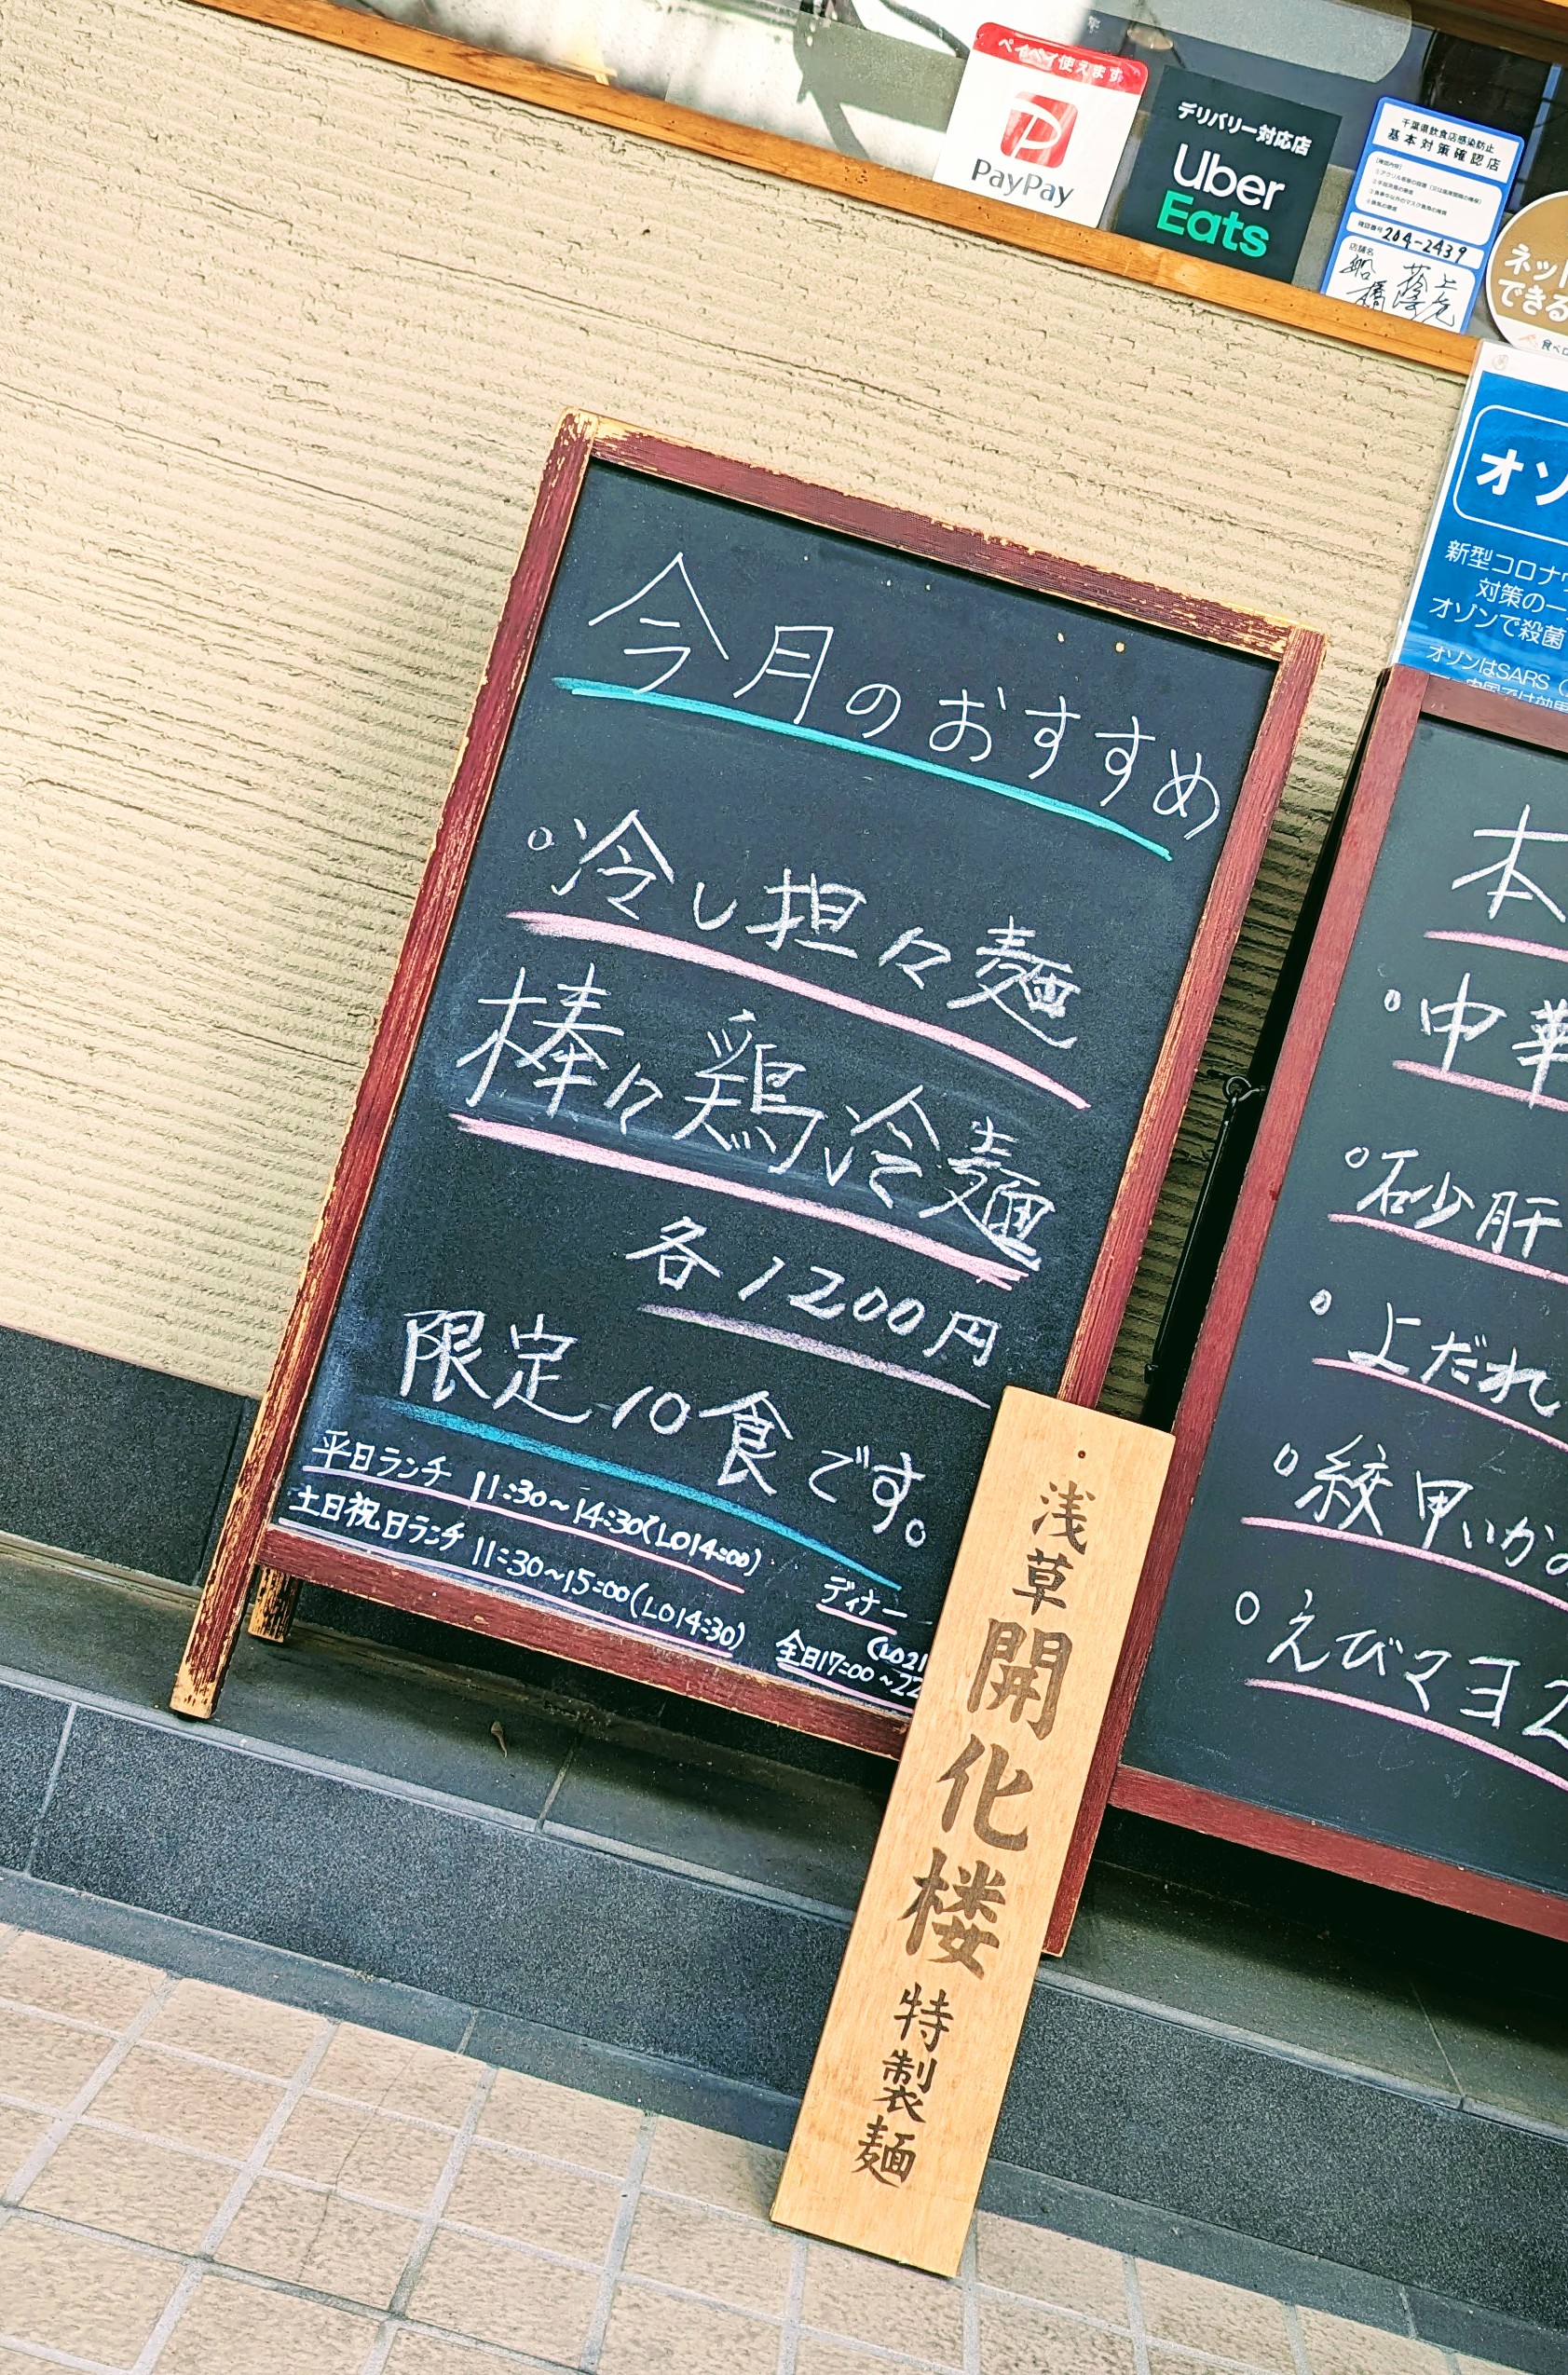 ペイペイ使えます
PayPay
デリバリー対応店
Uber
Eats
千葉県飲食店感染防止
基本対策確認店
確認番号 204-2439
店舗名
ネット
できる
オゾ
新型コロナウ
対策の一
オゾンで殺菌
オゾンはSARS（
今月のおすすめ
○冷し担々麺
棒々鶏冷麺
各1200円
限定10食です。
平日ランチ 11:30~14:30(LO14:00)
土日祝日ランチ 11:30~15:00(LO14:30)
ディナー
(LO21
全日17:00~22
浅草開化楼特製麺
本
○中華
○砂肝
○よだれ
○紋甲いか
○えびマヨ2